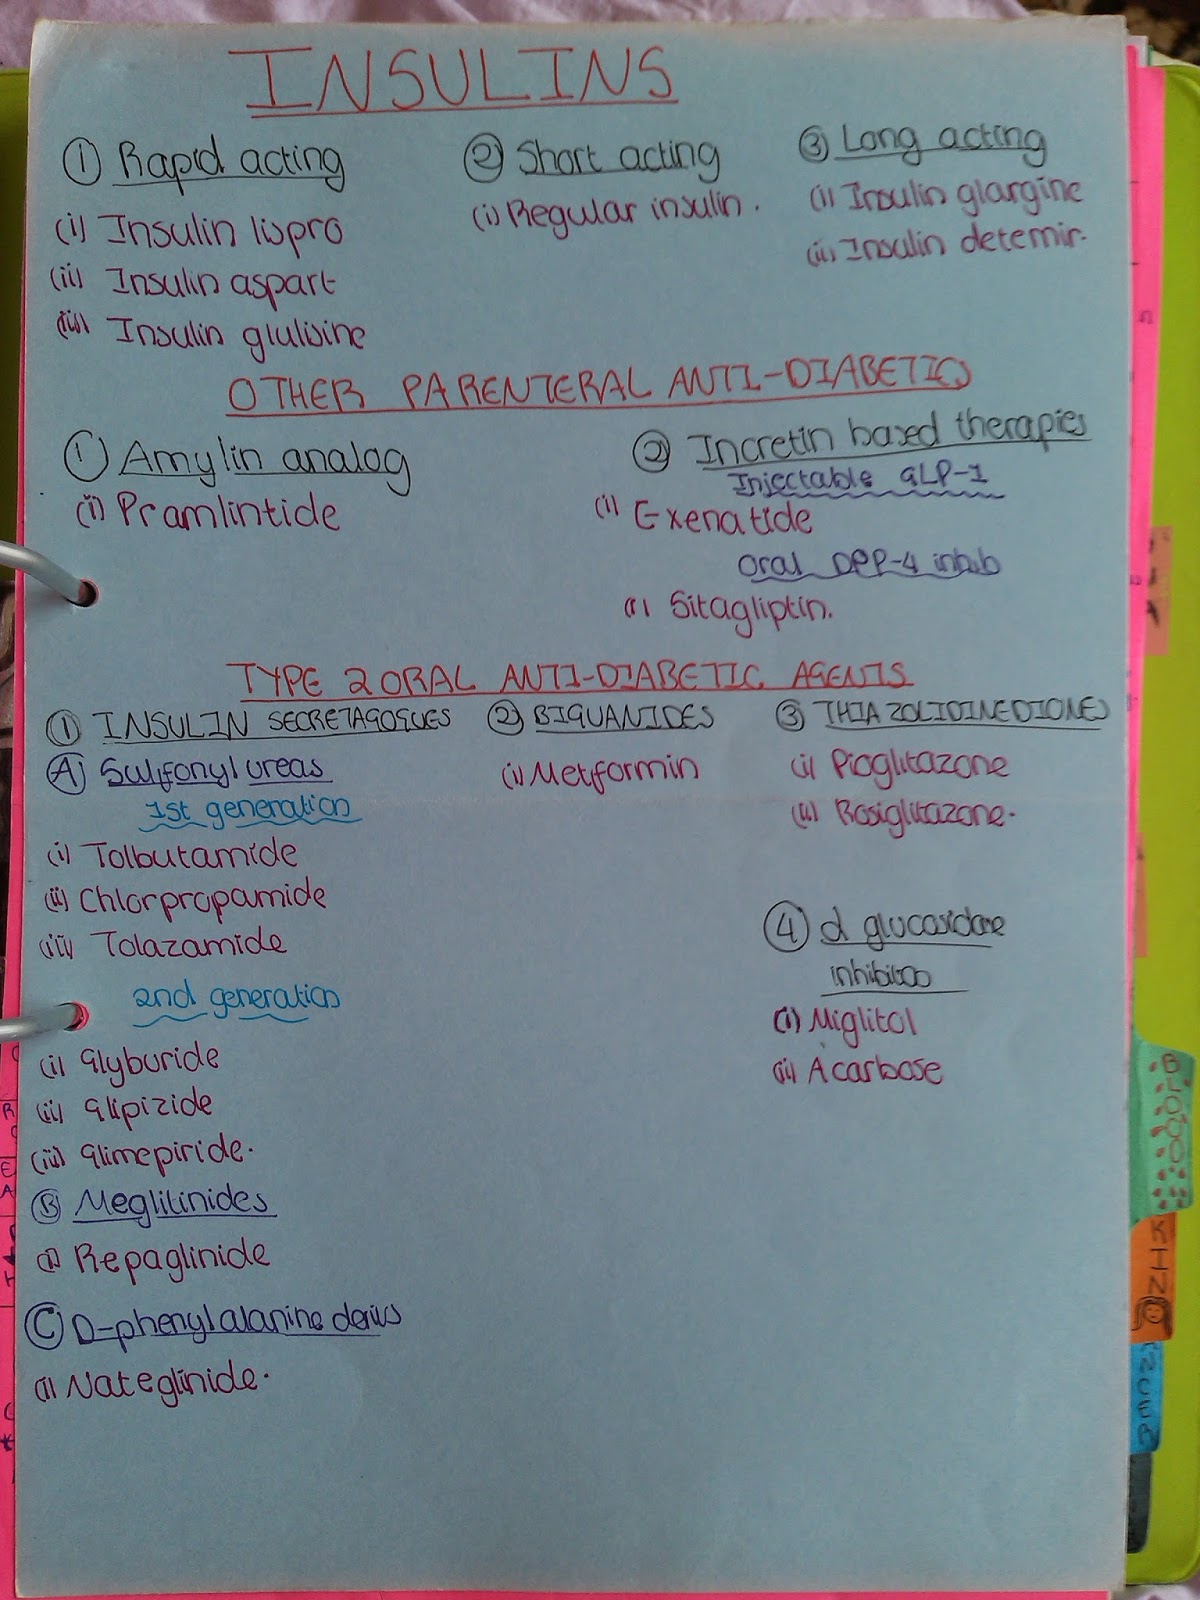 INSULINS
① Rapid acting
(i) Insulin lispro
(ii) Insulin aspart
(iii) Insulin glulisine
② Short acting
(i) Regular insulin.
③ Long acting
(i) Insulin glargine
(ii) Insulin detemir.
OTHER PARENTERAL ANTI-DIABETICS
① Amylin analog
(i) Pramlintide
② Incretin based therapies
Injectable GLP-1
(i) Exenatide
Oral DPP-4 inhib
(i) Sitagliptin.
TYPE 2 ORAL ANTI-DIABETIC AGENTS
① INSULIN SECRETAGOGUES
Ⓐ Sulfonylureas
1st generation
(i) Tolbutamide
(ii) Chlorpropamide
(iii) Tolazamide
2nd generation
(i) Glyburide
(ii) Glipizide
(iii) Glimepiride.
Ⓑ Meglitinides
(i) Repaglinide
Ⓒ D-phenylalanine derivs
(i) Nateglinide.
② BIGUANIDES
(i) Metformin
③ THIAZOLIDINEDIONES
(i) Pioglitazone
(ii) Rosiglitazone.
④ α glucosidase
inhibitors
(i) Miglitol
(ii) Acarbose
BLOOD
KIN
NCER